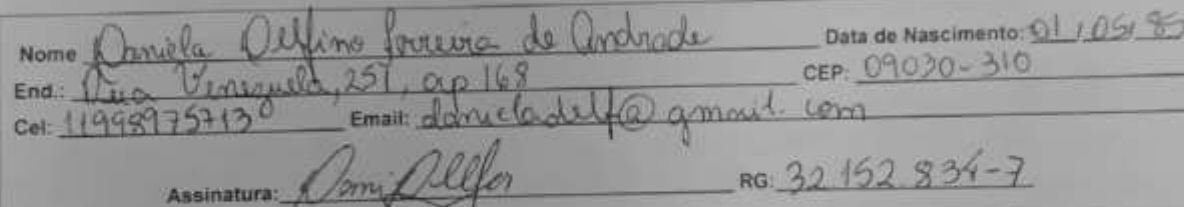 Nome Daniela Delfino Ferreira de Andrade Data de Nascimento: 01/05/85
End.: Rua Venezuela, 257, ap 168 CEP: 09030-310
Cel: 11998975713 Email: danieladelf@gmail.com
Assinatura: Dani Delfor RG: 32 152 834-7